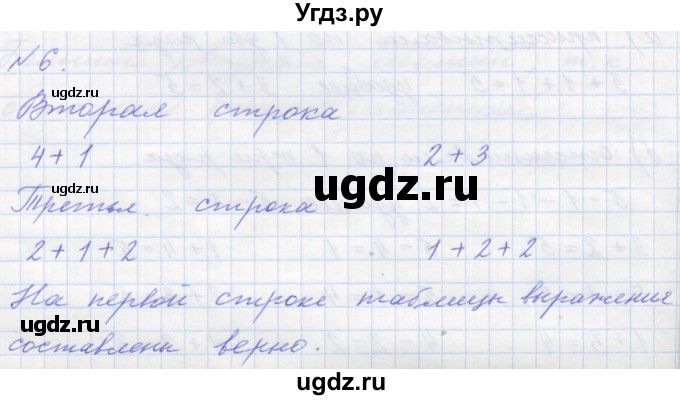 Угдз.ру
№6.
Вторая строка
4+1 2+3
Третья. строка
2+1+2 1+2+2
На первой строке таблицы выражения
составлены верно.
ugdz.ru
ugdz.ru
ugdz.ru
ugdz.ru
ugdz.ru